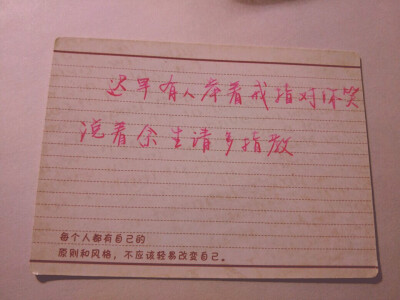 迟早有人举着戒指对你坏笑
说着余生请多指教
每个人都有自己的
原则和风格，不应该轻易改变自己。